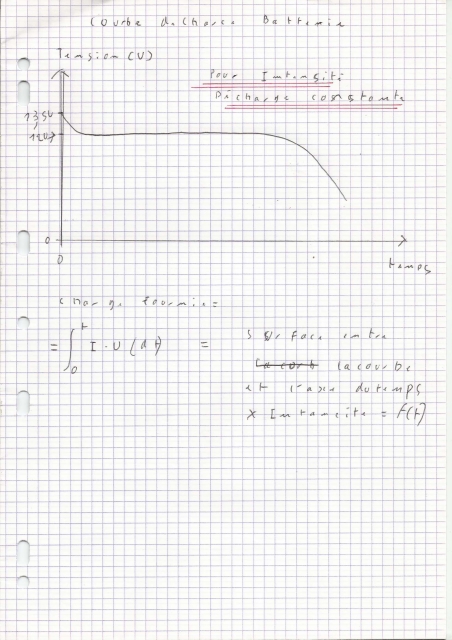 Courbe decharge Batterie
Tension (V)
Pour Intensité
Décharge constante
13,5V
12V
0
0
temps
charge fournie =
= ∫₀ᵗ I . U (dt) =
surface entre
la courbe
et l'axe du temps
x Intensité = f(t)